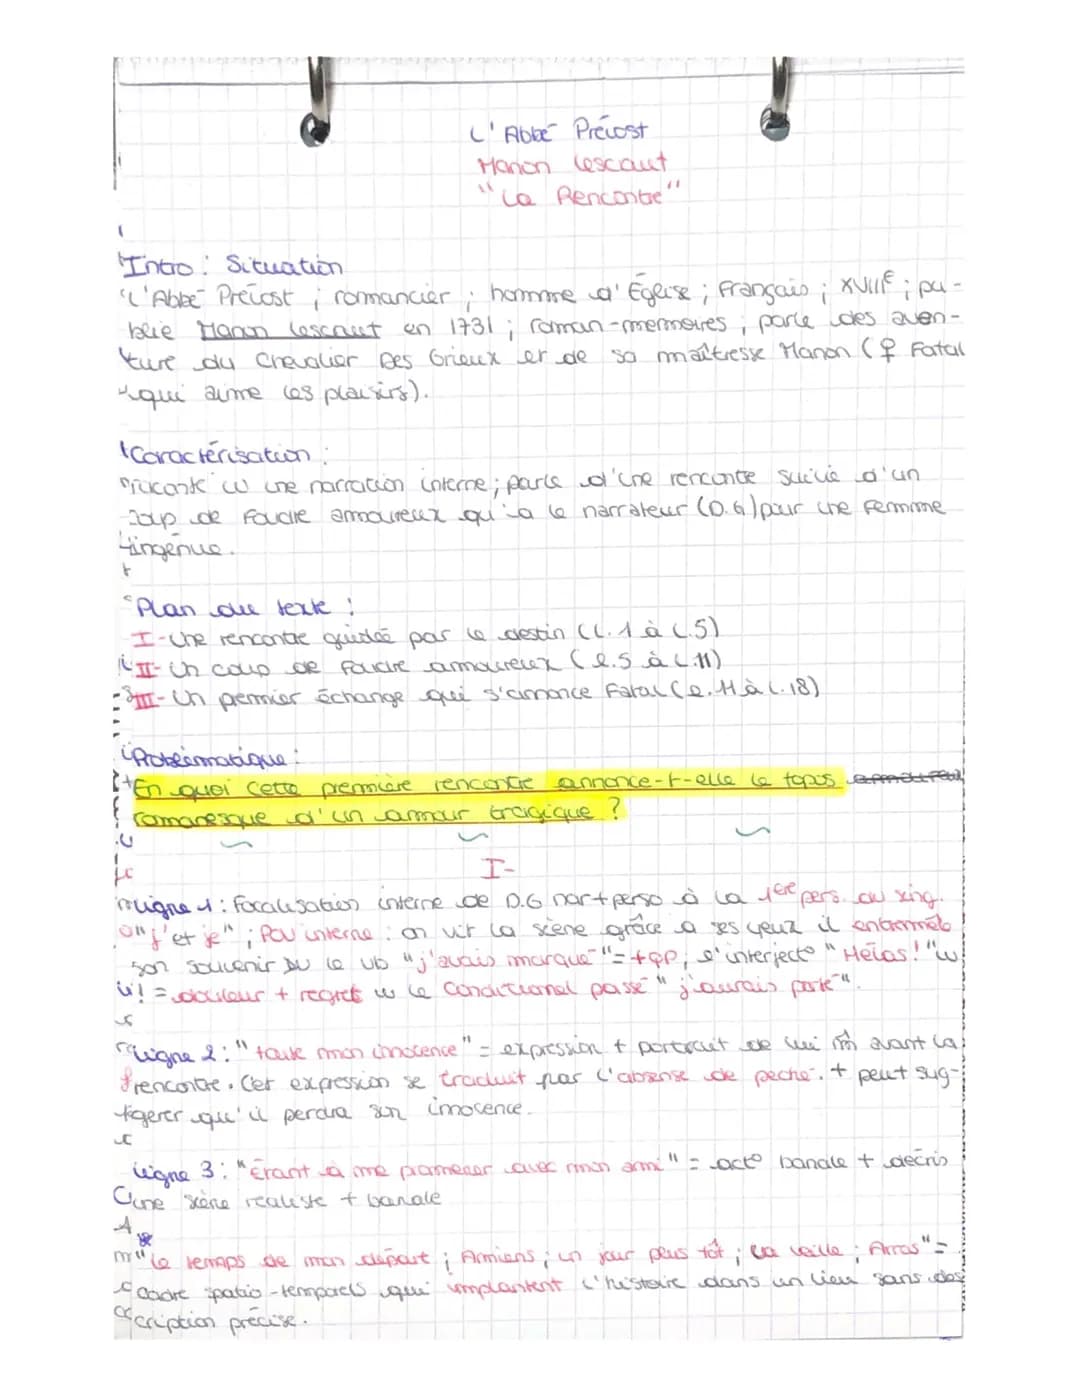 L'Abbé Prévost
Manon Lescaut
"La Rencontre"
Intro : Situation
L'Abbé Prévost ; romancier ; homme d'Église ; Français ; XVIIIe ; pu-
blie Manon Lescaut en 1731 ; roman-mémoires ; parle des aven-
ture du Chevalier Des Grieux et de sa maîtresse Manon (♀ Fatal
qui aime les plaisirs).
Caractérisation :
raconte w une narration interne ; parle d'une rencontre suivie d'un
coup de foudre amoureux qu'a le narrateur (D.G) pour une femme
ingénue.
Plan du texte :
I - Une rencontre guidée par le destin (L.1 à L.5)
II - Un coup de foudre amoureux (l.5 à L.11)
III - Un premier échange qui s'annonce Fatal (l.11 à L.18)
Problématique :
En quoi cette première rencontre annonce-t-elle le topos amoureux
romanesque d'un amour tragique ?
I-
Ligne 1 : Focalisation interne de D.G nar+perso à la 1ère pers. au sing.
"j' et je" ; PDV interne : on vit la scène grâce à ses yeux il entremêle
son souvenir DU le vb "j'avais marqué" = +qp ; l'interjecto "Hélas !" w
! = douleur + regret w le Conditionnel passé "j'aurais porté".
Ligne 2 : "toute mon innocence" = expression + portrait de lui m̂ avant la
rencontre. Cet expression se traduit par l'absense de peche. + peut sug-
gerer qu'il perdra son innocence.
Ligne 3 : "Étant à me promener avec mon ami" = acto banale + décris
une scène realiste + banale
"le temps de mon départ ; Amiens ; un jour plus tôt ; la veille ; Arras" =
cadre spatio-temporels qui implantent l'histoire dans un lieu sans des
cription précise.